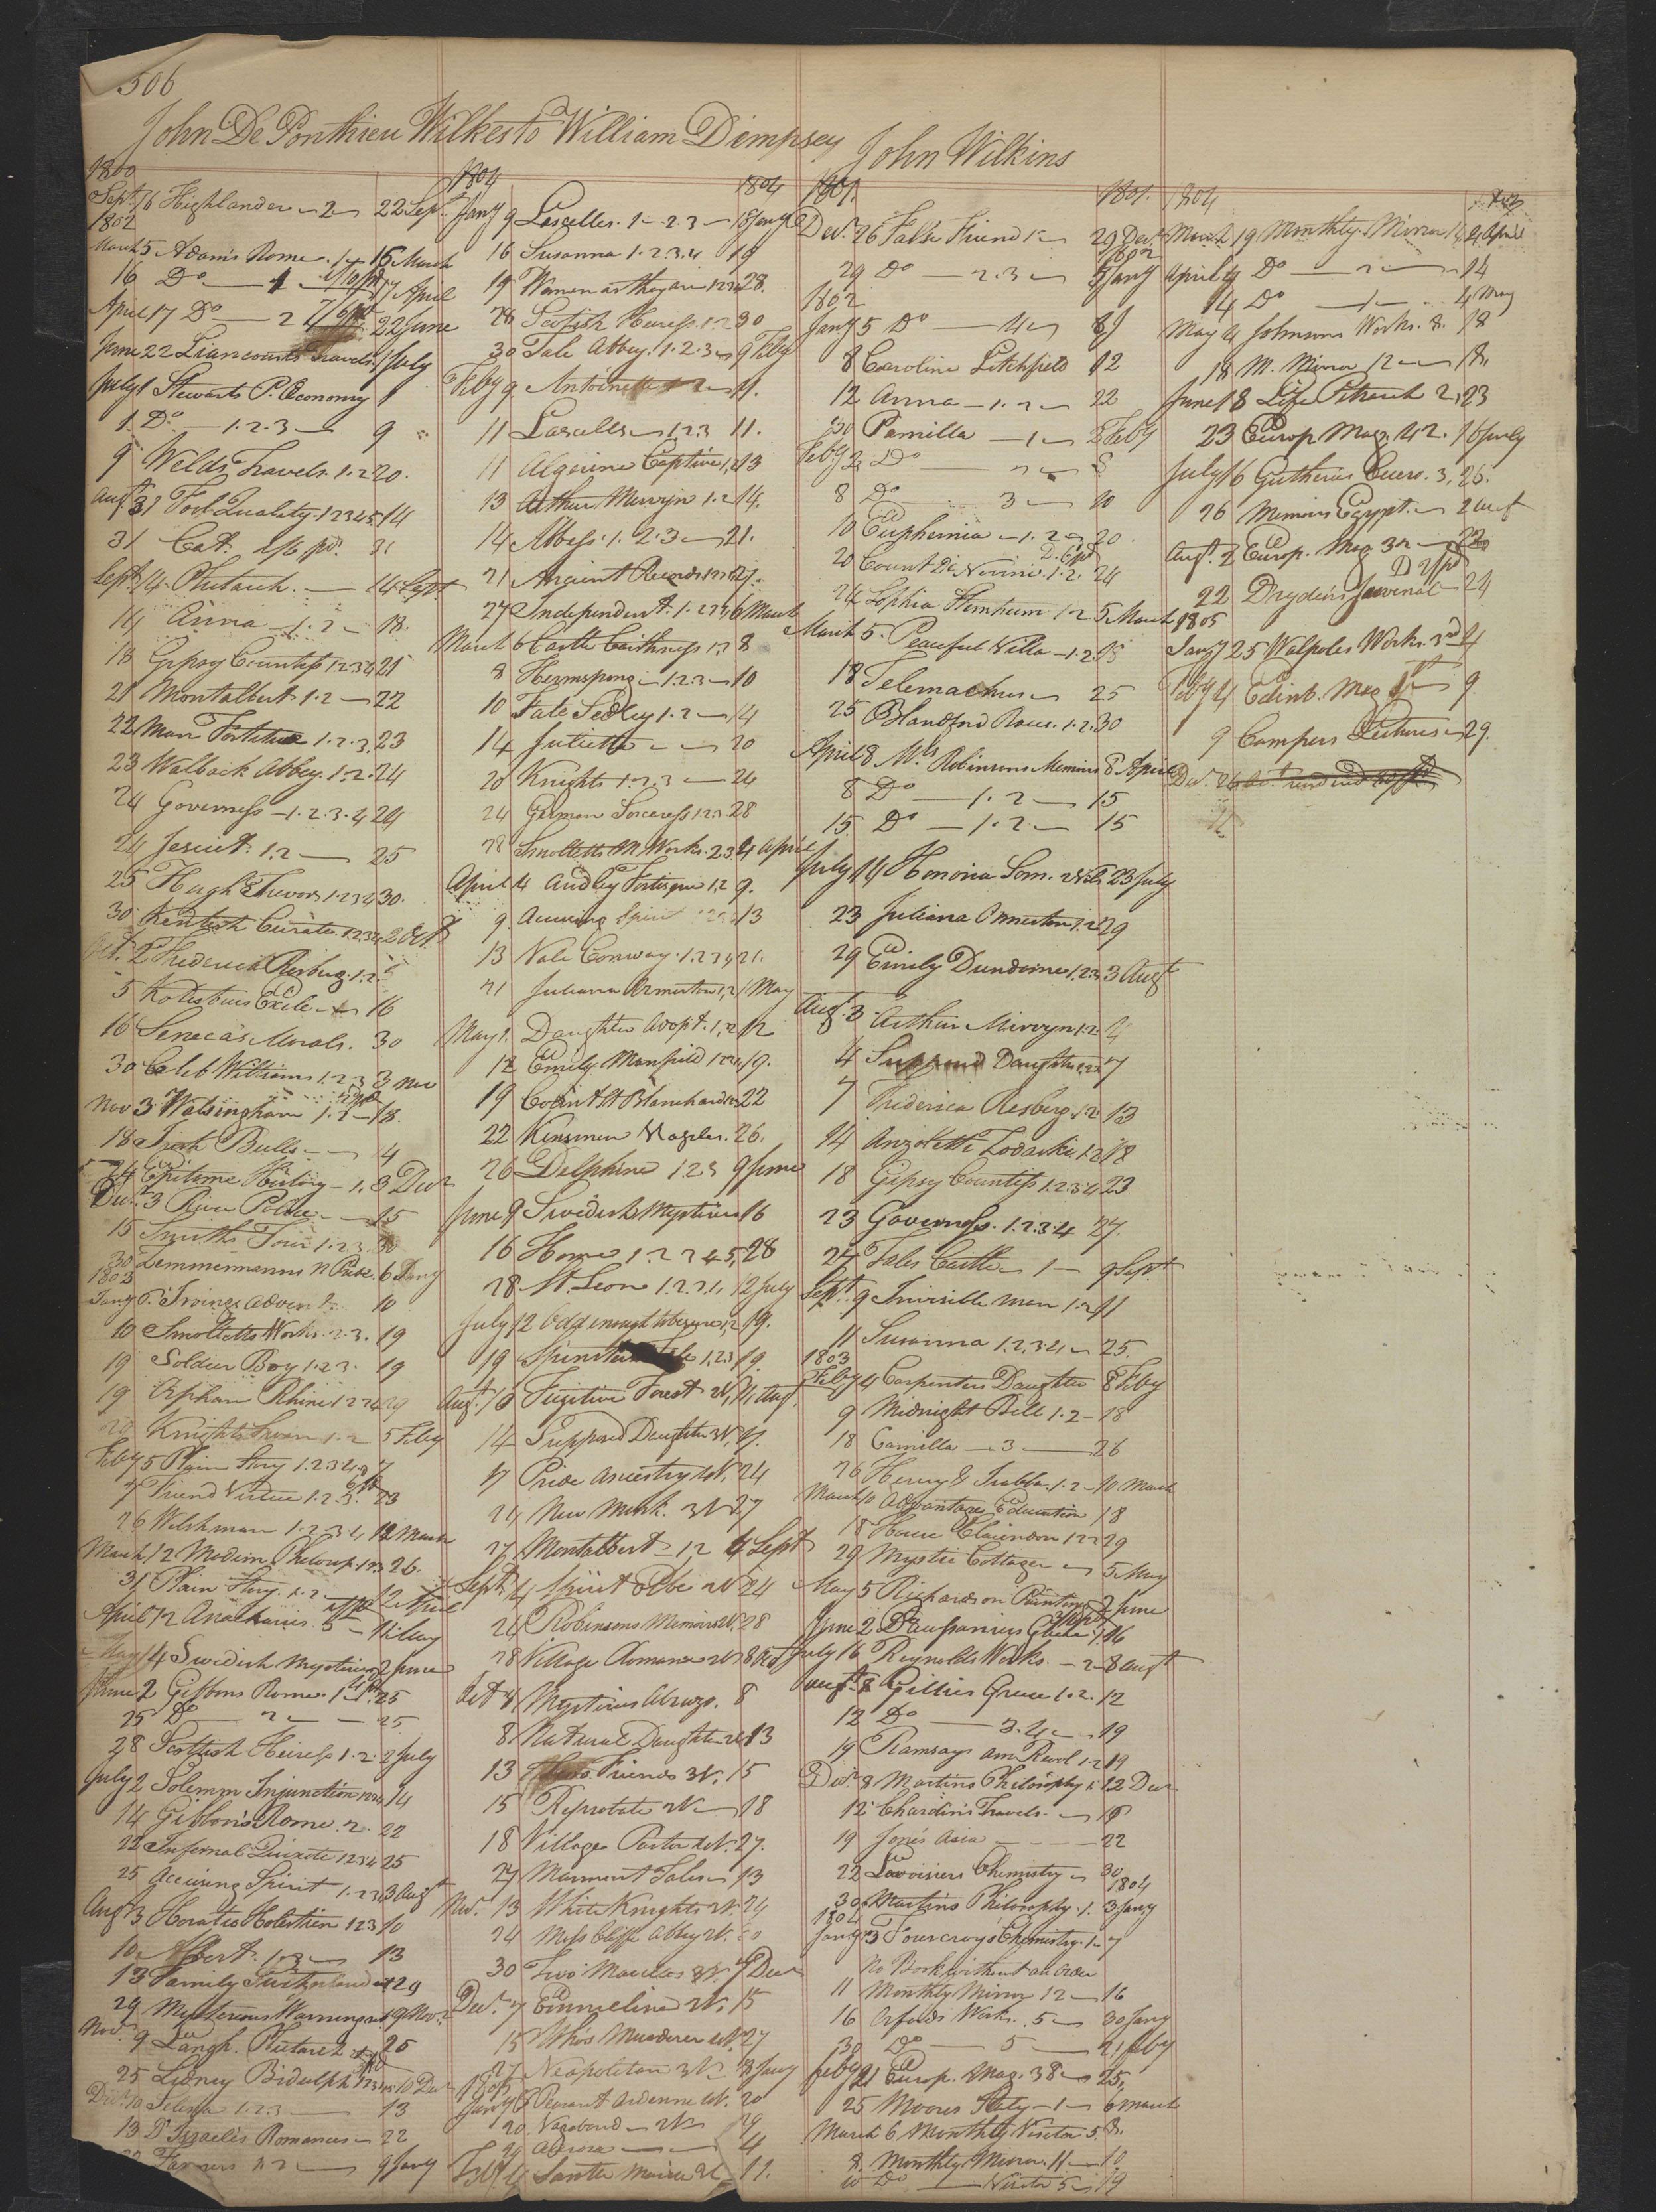 506
John De Ponthieu Wilkes to William Dempsey
John Wilkins
1800
Sept. 16 Highlander 2 22 Sept
1802
March 5 Adams Rome 1 16 March
16 Do 1 17 April
April 17 Do 2 7/6 pd 22 June
June 22 Liancourts Travels 1 July
July 1 Stewarts P. Economy 1
1 Do 1.2.3 9
9 Welds Travels 1.2 20.
Augt 31 Fool Quality 1 2 3 4 5 14
31 Cat. 1/6 pd. 31
Sept. 14 Plutarch 14 Sept.
14 Anna 1.2 18.
18 Gypsy Countess 1 2 3 4 21
21 Montalbert 1.2 22
22 Man Fortitude 1.2.3 23
23 Walback Abbey 1.2 24
24 Governess 1.2.3.4 24
24 Jesuit 1.2 25
25 Hugh Trevor 1 2 3 4 30.
30 Kentish Curate 1 2 3 4 2 Oct.
Oct. 2 Frederica Risberg 1.2
5 Kotzebues Exile 16
16 Senecas Morals. 30
30 Caleb Williams 1.2.3 3 Nov
Nov 3 Walsingham 1.2 18.
18 Irish Bulls 4
24 Epitome History 1. 3 Decr
Decr. 3 River Police 15
15 Smiths Tour 1.2.3 30
30 Zimmermanns N Pride. 6 Jany
1803
Jany 6. Irvings Advent. 10
10 Smolletts Works 2.3. 19
19 Soldier Boy 1.2.3. 19
19 Orphan Rhine 1 2 3 4 29
Knights Swan 1.2 5 Feby
Feby 5 Plain Story 1.2.3.4 7
7 Friend Virtue 1.2.3. 23
26 Welshman 1.2.3.4 12 March
March 12 Modern Philosop. 1 2 3 26.
31 Plain Story 1.2 12 April
April 12 Anacharsis 5 14 May
May 14 Swedish Mysteries 2 June
June 2 Gibbons Rome 1 25
25 Do 2 25
28 Scottish Heiress 1.2. 2 July
July 2 Solemn Injunction 1 2 3 4 14
14 Gibbons Rome 2. 22
22 Infernal Quixote 1 2 3 4 25
25 Accusing Spirit 1.2 3 4 3 Augt
Augt 3 Horatio Holestien 1 2 3 10
10 Albert. 1.2 13
13 Family Switzerland 29
29 Mysterious Warnings 19 Nov.
Nov. 9 Langh. Plutarch 25
25 Sidney Bidulph 10 Decr
Decr. 10 Selima 1.2.3 13
13 D Israelis Romances 22
Farmers 9 Jany
1804 1804
Jany 9 Lascelles. 1.2.3 13 Jany
16 Susanna 1.2.3.4 19
19 Women as they are 28.
28 Scotish Heiress. 1.2 30
30 Tale Abbey. 1.2.3 9 Feby
Feby 9 Antoinette 1.2 11.
11 Lascelles 1 2 3 11.
11 Algerine Captive 1.2 13
13 Arthur Mervyn 1.2 14.
14 Abbess 1.2.3 21.
21 Ancient Records 27.
27 Independent. 1.2 3 4 6 March
March 6 Castle Caithness 1.2 8
8 Hermsprong 1.2.3 10
10 Fate Sedley 1.2 14
14 Juliette 20
20 Knights 1.2.3 24
24 German Sorceress 1.2.3. 28
28 Smolletts M Works. 2.3. 4 April
April 4 Audley Fortesque 1.2 9.
9 Accusing Spirit 13
13 Vale Conway 1.2 3 4 21.
21 Juliana Ormeston 1.2 1 May
May 1. Daughter Adopt. 1.2 12
12 Emily Manfield 19.
19 Count St Blanchard 22
22 Kinsmen Naples. 26.
26 Delphine 1 2 3 9 June
June 9 Swedish Mysteries 16
16 Home 1 2 3 4 5 28
28 St. Leon 1.2.3.4 12 July
July 12 Odd enough to be sure 1.2 19.
19 Spinsters Tale 1,2 3 19.
Augt. 10 Fugitive Forest 2V. 14 Augt.
14 Supposed Daughter 3V. 17.
17 Pride Ancestry 4V. 24
24 New Monk. 3V 27
27 Montalbert 1.2 4 Sept
Sept. 4 Spirit Elbe 2V 24
24 Robinsons Memoirs 2V. 28
28 Village Romance 2V 8 Oct
Oct 4 Mysterious Abruzo. 8
8 Natural Daughter 2V 13
13 Friends 3V. 15
15 Reprobate 2V 18
18 Village Pastor 2V. 27.
27 Marmont Tales 13
Nov. 13 White Knights 2V. 24
24 Miss Cliffe Abbey 2V. 30
30 Two Marcellas 2V. 7 Decr
Decr. 7 Emmeline 2V. 15
15 Whos Murderer 4V. 27
27 Neapolitan 3V. 3 Jany
1805
Jany 3 Peasant Ardenne 2V. 20
20. Vagabond 2V 29
29 Aurora 4
Feby 4 Santa Maria 2V 11.
1801. 1801.
Decr. 26 False Friend 1 29 Decr.
29 Do 2.3 5 Jany
1802
Jany 5 Do 4 8 J
8 Caroline Litchfield 12
12 Anna 1.2 22
30 Pamilla 1 2 Feby
Feby 2 Do 2 8
8 Do 3 10
10 Euphemia 1.2 20
20 Count Di Novini 1.2. 24
24 Sophia Sternheim 1.2 5 March
March 5. Peaceful Villa 1.2 18
18 Telemachus 25
25 Blandford Races. 1.2. 30
April 8 Mrs Robinsons Memoirs 8 April
8 Do 1.2 15
15 Do 1.2 15
July 14 Honoria Som. 2 Vols 23 July
23 Juliana Ormeston 1.2 29
29 Emily Dundorne 1.2.3. 3 Augt
Aug. 3. Arthur Mirvyn 1.2 4
4 Supposed Daughter 1.2.3 7
7 Frederica Risberg 1.2 13
14 Anzoletta Zodaiki 1.2 18
18 Gipsy Countess 1.2.3.4 23
23 Governess. 1.2.3.4 27.
27 Tales Castle 1 9 Sept.
Sept. 9 Invisible Man 1.2 11
11 Susanna 1.2.3.4 25.
1803
Feby 4 Carpenters Daughter 8 Feby
9 Midnight Bell 1.2 18
18 Camilla 3 26
26 Henry & Isabella. 1.2 10 March
March 10 Advantages Education 18
18 House Clarendon 1 2 29
29 Mystic Cottager 5 May
May 5 Richardson Painting 2 June
June 2 Pausanius Greece 16
July 16 Reynolds Works. 2 8 Augt
Augt 8 Gillies Greece 1.2. 12
12 Do 3.4 19
19 Ramsays Am Revol 1.2 19
Decr. 8 Martins Philosophy 1. 12 Decr
12 Chardins Travels. 18
19 Jones Asia 22
22 Lavoisiers Chemistry 30
1804
30 Martins Philosophy. 1. 3 Jany
1804
Jany 3 Fourcroys Chemistry. 1 7
No Book without an order
11 Monthly Mirror 12 16
16 Orfords Works. 5 30 Jany
30 Do 5 21 Feby
Feby 21 Europ. Mag. 38 25,
25 Moores Italy 1 6 March
March 6 Monthly Visitor 5. 8.
8. Monthly Mirror. 11 10.
10 Do Visitor 5 19
1804
March 19 Monthly Mirror 4 April
April 4 Do 2 14
14 Do 1 4 May
May 4 Johnsons Works. 8. 18
18 M. Mirror 12 18.
June 18 Life Petrarch 2, 23
23 Europ Mag. 42. 16 July
July 16 Guthries Cicero. 3, 26.
26 Memoirs Egypt. 2 Augt
Augt. 2 Europ. Mag 32 22
22 Drydens Juvenal 24
1805
Jany 25 Walpoles Works. 3rd 4
Feby 4 Edinb. Mag 9.
9 Campers Lectures 29.
Decr. 26